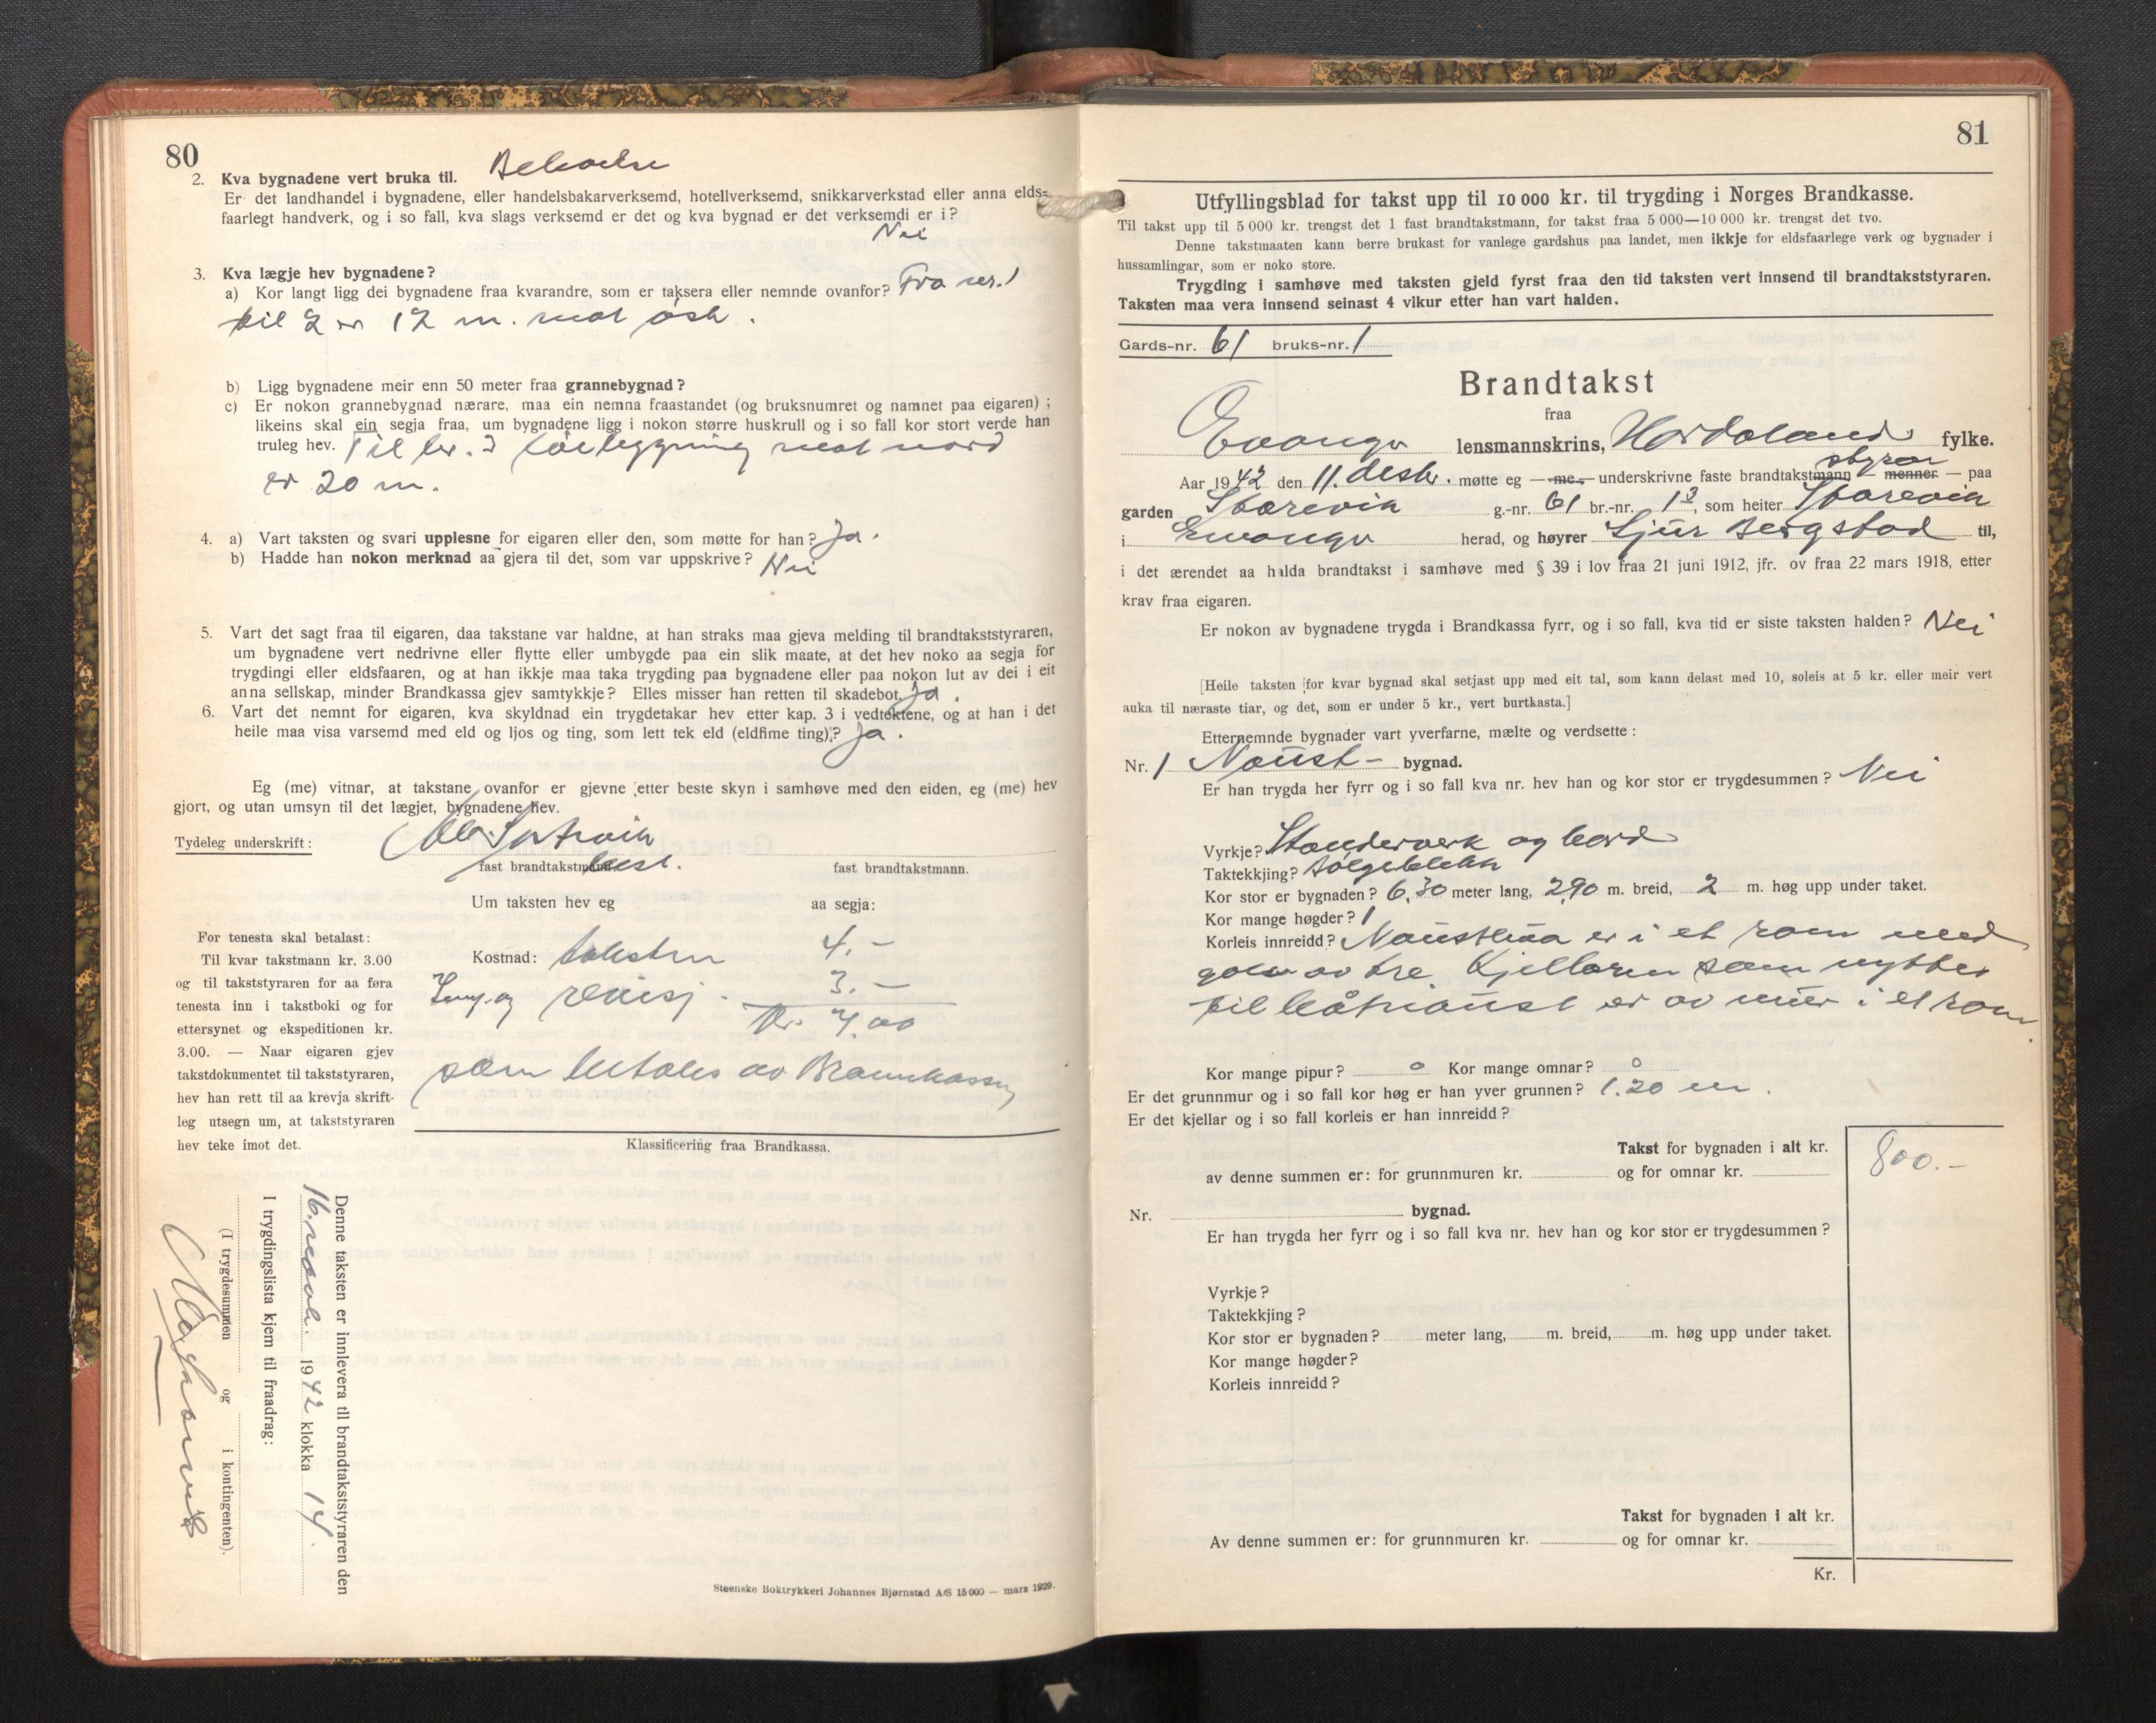 80
2. Kva bygnadene vert bruka til.
Er det landhandel i bygnadene, eller handelsbakarverksemd, hotellverksemd, snikkarverkstad eller anna elds-
faarlegt handverk, og i so fall, kva slags verksemd er det og kva bygnad er det verksemdi er i?
Nei
3. Kva lægje hev bygnadene?
a) Kor langt ligg dei bygnadene fraa kvarandre, som er taksera eller nemnde ovanfor? Fra nr. 1
til 2 er 12 m. mot øst.
b) Ligg bygnadene meir enn 50 meter fraa grannebygnad?
c) Er nokon grannebygnad nærare, maa ein nemna fraastandet (og bruksnumret og namnet paa eigaren);
likeins skal ein segja fraa, um bygnadene ligg i nokon større huskrull og i so fall kor stort verde han
truleg hev. Til br. 3 løebygning mot nord
er 20 m.
4. a) Vart taksten og svari upplesne for eigaren eller den, som møtte for han? Ja.
b) Hadde han nokon merknad aa gjera til det, som var uppskrive? Nei
5. Vart det sagt fraa til eigaren, daa takstane var haldne, at han straks maa gjeva melding til brandtakststyraren,
um bygnadene vert nedrivne eller flytte eller umbygde paa ein slik maate, at det hev noko aa segja for
trygdingi eller eldsfaaren, og at han ikkje maa taka trygding paa bygnadene eller paa nokon lut av dei i eit
anna sellskap, minder Brandkassa gjev samtykkje? Elles misser han retten til skadebot. Ja.
6. Vart det nemnt for eigaren, kva skyldnad ein trygdetakar hev etter kap. 3 i vedtektene, og at han i det
heile maa visa varsemd med eld og ljos og ting, som lett tek eld (eldfime ting)? Ja.
Eg (me) vitnar, at takstane ovanfor er gjevne etter beste skyn i samhøve med den eiden, eg (me) hev
gjort, og utan umsyn til det lægjet, bygnadene hev.
Tydeleg underskrift:
fast brandtakstmann. fast brandtakstmann.
Um taksten hev eg aa segja:
For tenesta skal betalast:
Til kvar takstmann kr. 3.00
og til takststyraren for aa føra
tenesta inn i takstboki og for
ettersynet og ekspeditionen kr.
3.00. — Naar eigaren gjev
takstdokumentet til takststyraren,
hev han rett til aa krevja skrift-
leg utsegn um, at takststyraren
hev teke imot det.
Kostnad: taksten 4.-
og revisj. 3.-
Kr. 7.00
som betales av Brannkassen
Klassificering fraa Brandkassa.
Denne taksten er innlevera til brandtakststyraren den
16. 1942 klokka 14.
I trygdingslista kjem til fraadrag:
(I trygdesummen og i kontingenten).
Steenske Boktrykkeri Johannes Bjørnstad A/S 15 000 — mars 1929.
81
Utfyllingsblad for takst upp til 10 000 kr. til trygding i Norges Brandkasse.
Til takst upp til 5 000 kr. trengst det 1 fast brandtakstmann, for takst fraa 5 000—10 000 kr. trengst det tvo.
Denne takstmaaten kann berre brukast for vanlege gardshus paa landet, men ikkje for eldsfaarlege verk og bygnader i
hussamlingar, som er noko store.
Trygding i samhøve med taksten gjeld fyrst fraa den tid taksten vert innsend til brandtakststyraren.
Taksten maa vera innsend seinast 4 vikur etter han vart halden.
Gards-nr. 61 bruks-nr. 1
Brandtakst
fraa
Evanger lensmannskrins, Hordaland fylke.
Aar 1942 den 11. desbr. møtte eg — me — underskrivne faste brandtakstmann — menner — paa
styrar
garden Storevik g.-nr. 61 br.-nr. 1³, som heiter Storevik
i Evanger herad, og høyrer Sjur Bergstad til,
i det ærendet aa halda brandtakst i samhøve med § 39 i lov fraa 21 juni 1912, jfr. ov fraa 22 mars 1918, etter
krav fraa eigaren.
Er nokon av bygnadene trygda i Brandkassa fyrr, og i so fall, kva tid er siste taksten halden? Nei
[Heile taksten for kvar bygnad skal setjast upp med eit tal, som kann delast med 10, soleis at 5 kr. eller meir vert
auka til næraste tiar, og det, som er under 5 kr., vert burtkasta.]
Etternemnde bygnader vart yverfarne, mælte og verdsette:
Nr. 1 Naust- bygnad.
Er han trygda her fyrr og i so fall kva nr. hev han og kor stor er trygdesummen? Nei
Vyrkje? Standerverk og bord
Taktekkjing? Bølgeblekk
Kor stor er bygnaden? 6,30 meter lang, 2,90 m. breid, 2 m. høg upp under taket.
Kor mange høgder? 1
Korleis innreidd? Naustbua er i et rom med
golv av tre. Kjelleren som nyttes
til båtnaust er av mur i et rom
Kor mange pipur? 0 Kor mange omnar? 0
Er det grunnmur og i so fall kor høg er han yver grunnen? 1.20 m.
Er det kjellar og i so fall korleis er han innreidd?
Takst for bygnaden i alt kr. 800.-
av denne summen er: for grunnmuren kr. og for omnar kr.
Nr. bygnad.
Er han trygda her fyrr og i so fall kva nr. hev han og kor stor er trygdesummen?
Vyrkje?
Taktekkjing?
Kor stor er bygnaden? meter lang, m. breid, m. høg upp under taket.
Kor mange høgder?
Korleis innreidd?
Takst for bygnaden i alt kr.
Av denne summen er: for grunnmuren kr. og for omnar kr.
Kr.